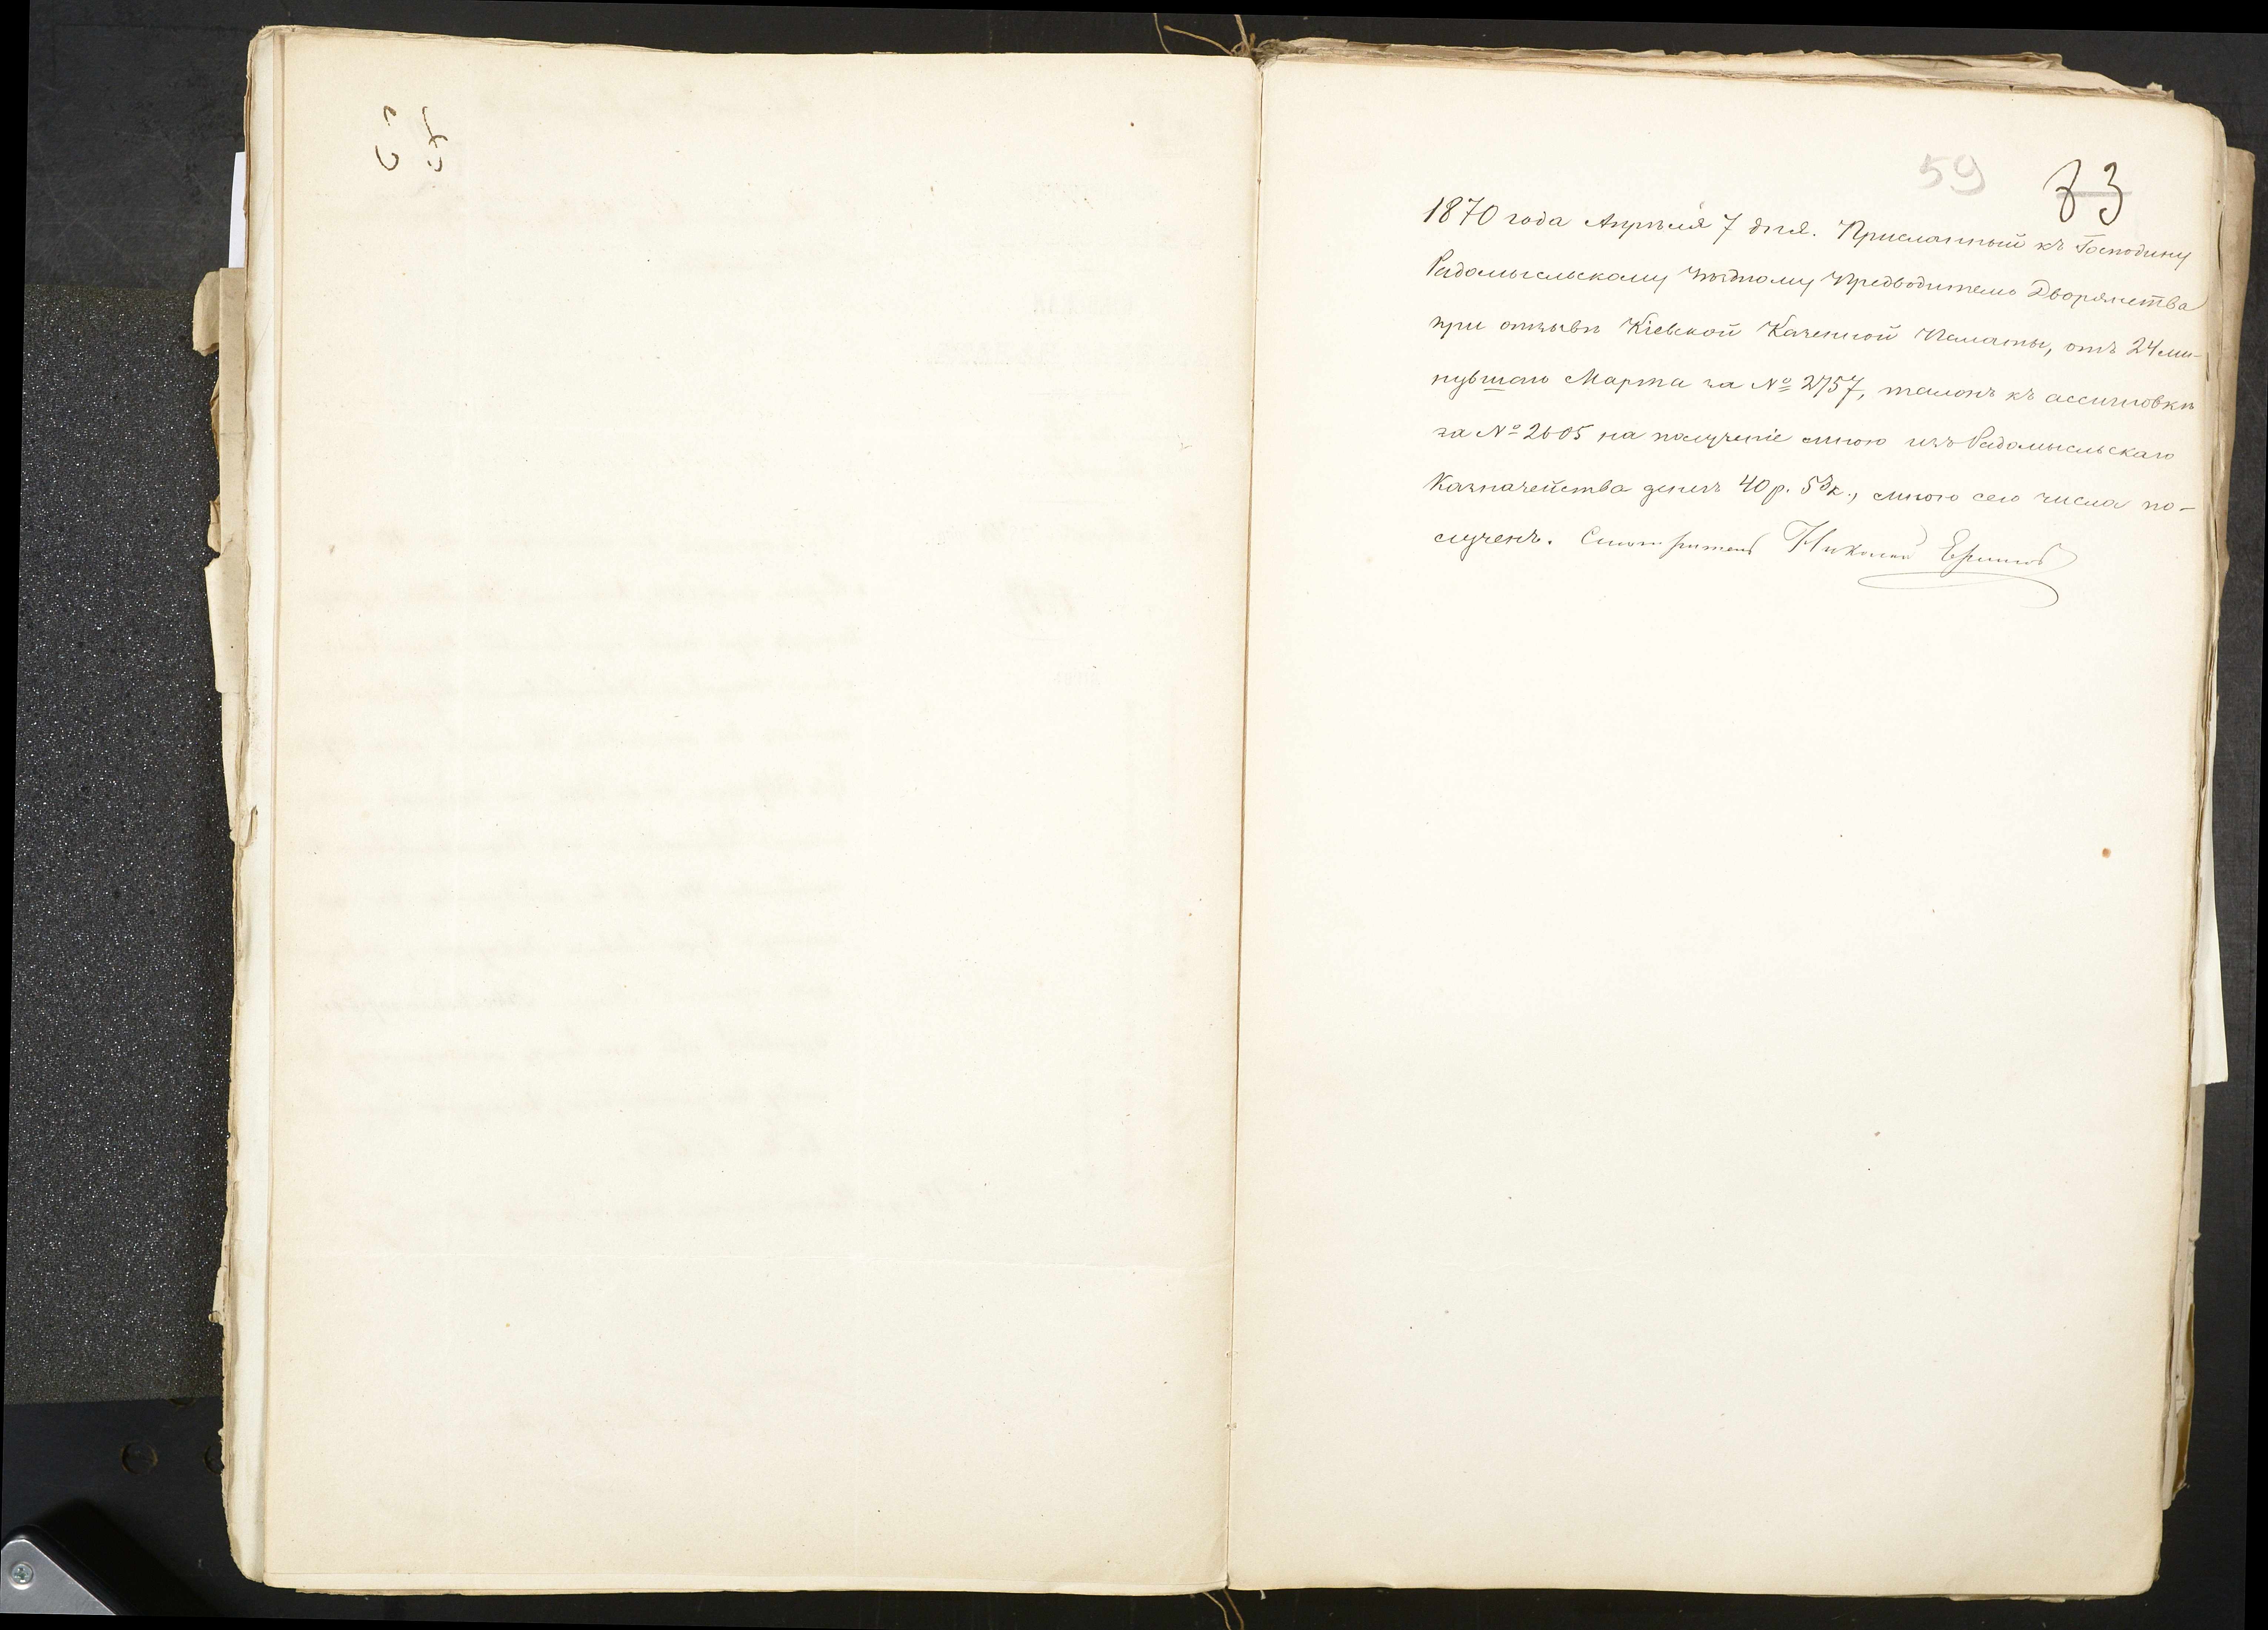 59 73
1870 года Апрѣля 7 дня. Присланный къ Господину
Радомысльскому Уѣздному Предводителю Дворянства
при отзывѣ Кіевской Казенной Палаты, отъ 24 ми-
нувшаго Марта за № 2757, талонъ къ ассигновкѣ
за № 2605 на полученіе мною изъ Радомысльскаго
Казначейства денегъ 40 р. 53 к., мною сего числа по-
лученъ. Смотритель Николай